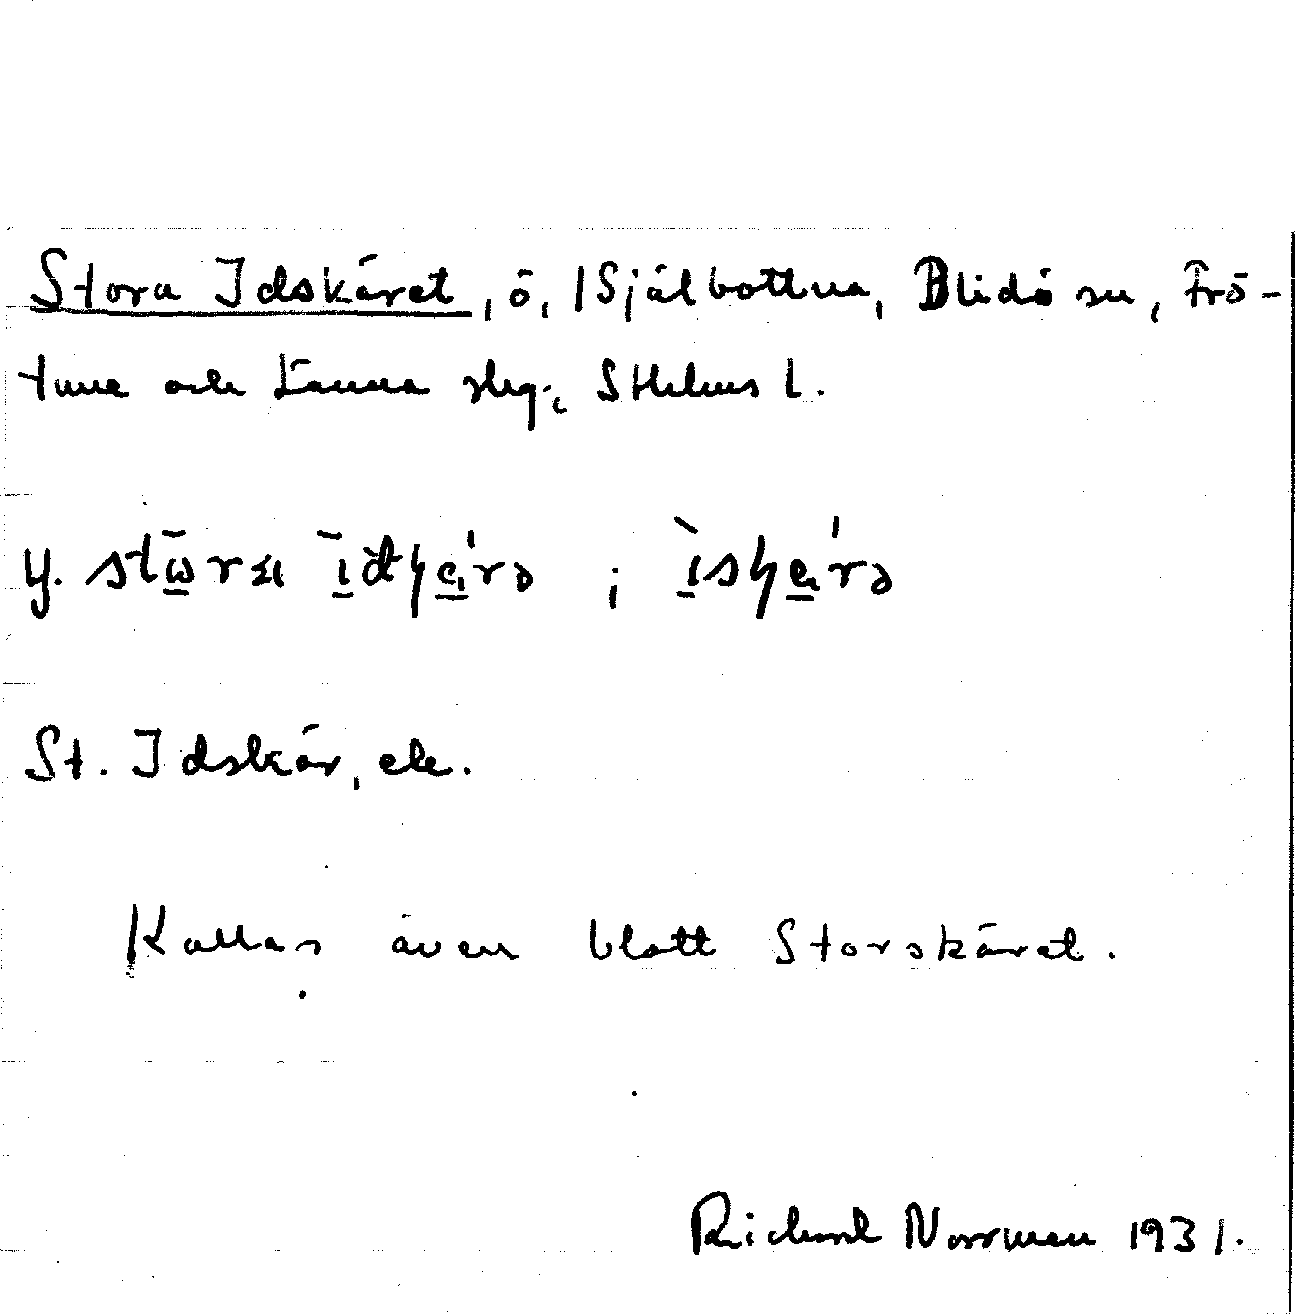 Stora Idskäret, ö, Själbottna, Blidö sn, Frö-
tuna och Länna skg., Sthlms l.
y.
St. Idskär, ek.
Kallas även blott Storskäret.
Richard Norrman 1931.